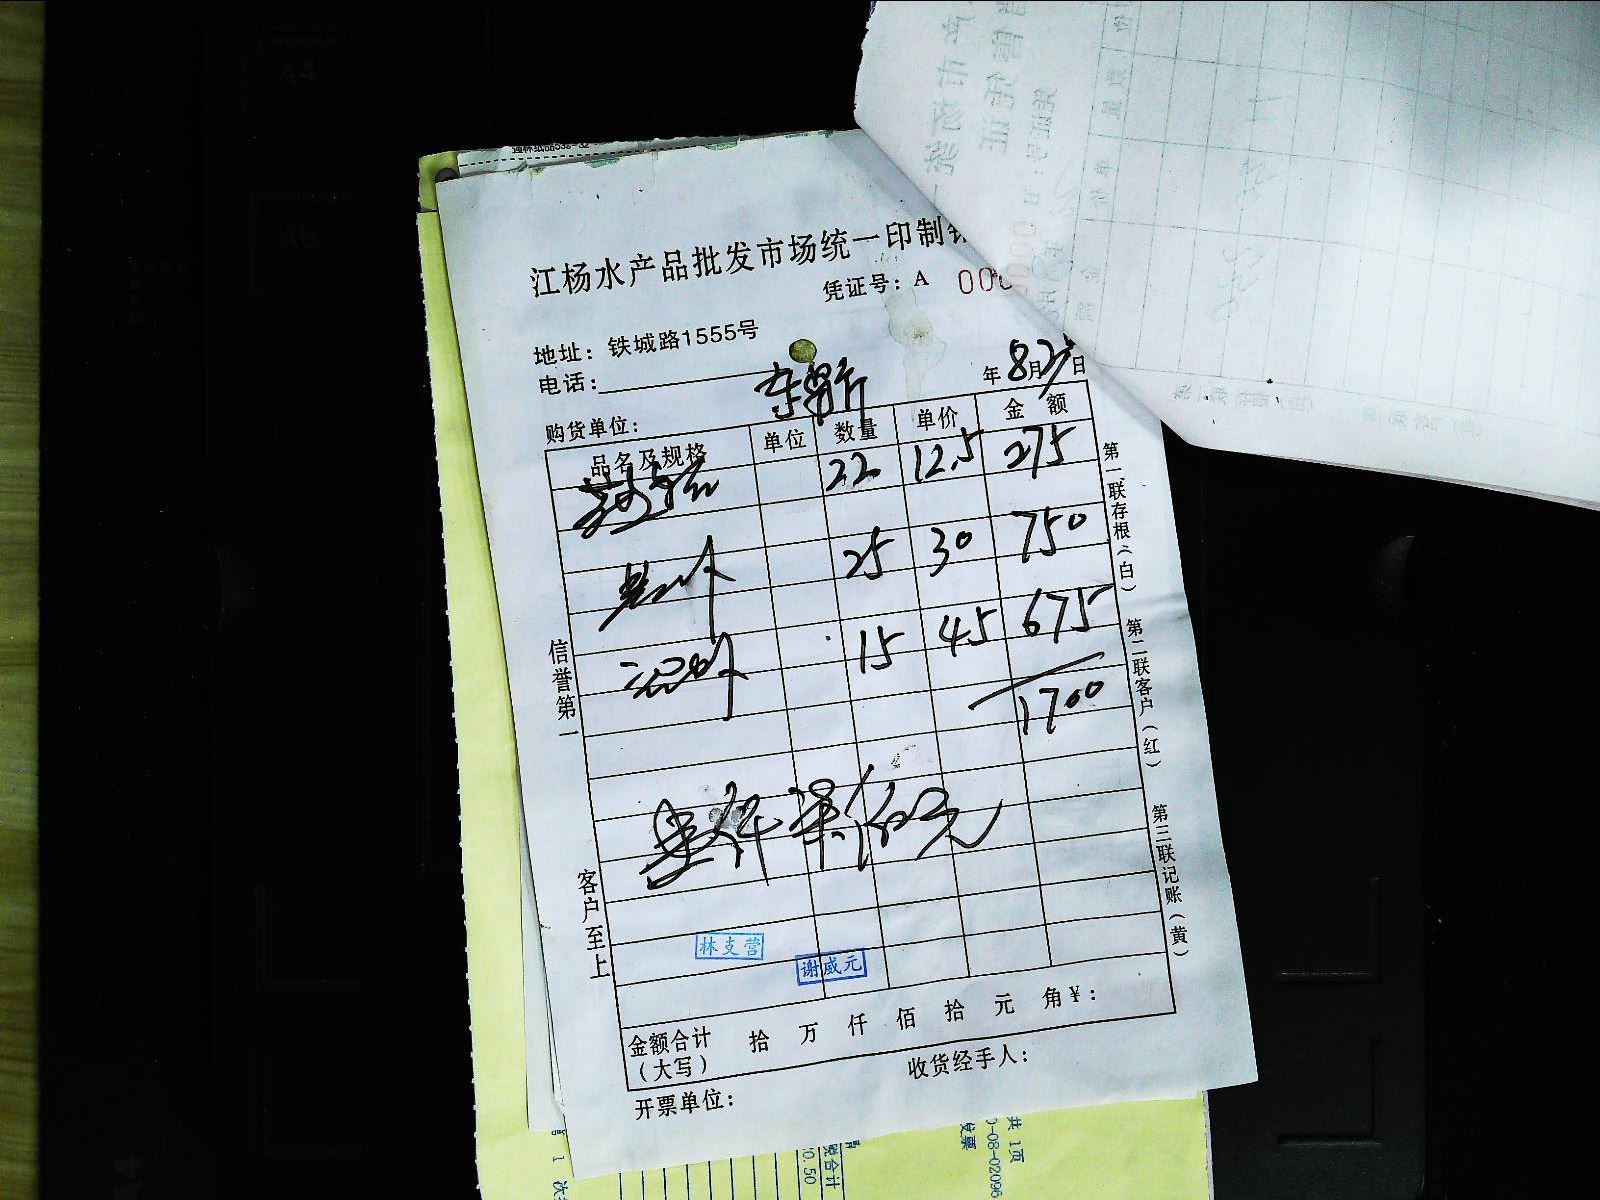 江杨水产品批发市场统一印制
凭证号：A 000
地址：铁城路1555号
电话：
购货单位：
年8月 日
品名及规格 单位 数量 单价 金额
22 12.5 275
25 30 750
15 45 675
1700
壹仟柒佰元
林支营
谢威元
金额合计 拾 万 仟 佰 拾 元 角￥：
（大写）
收货经手人：
开票单位：
信誉第一
客户至上
第一联存根（白）
第二联客户（红）
第三联记账（黄）
A4
A5
共 1页
0-08-02096
发票
聚合计
70.50
1 次